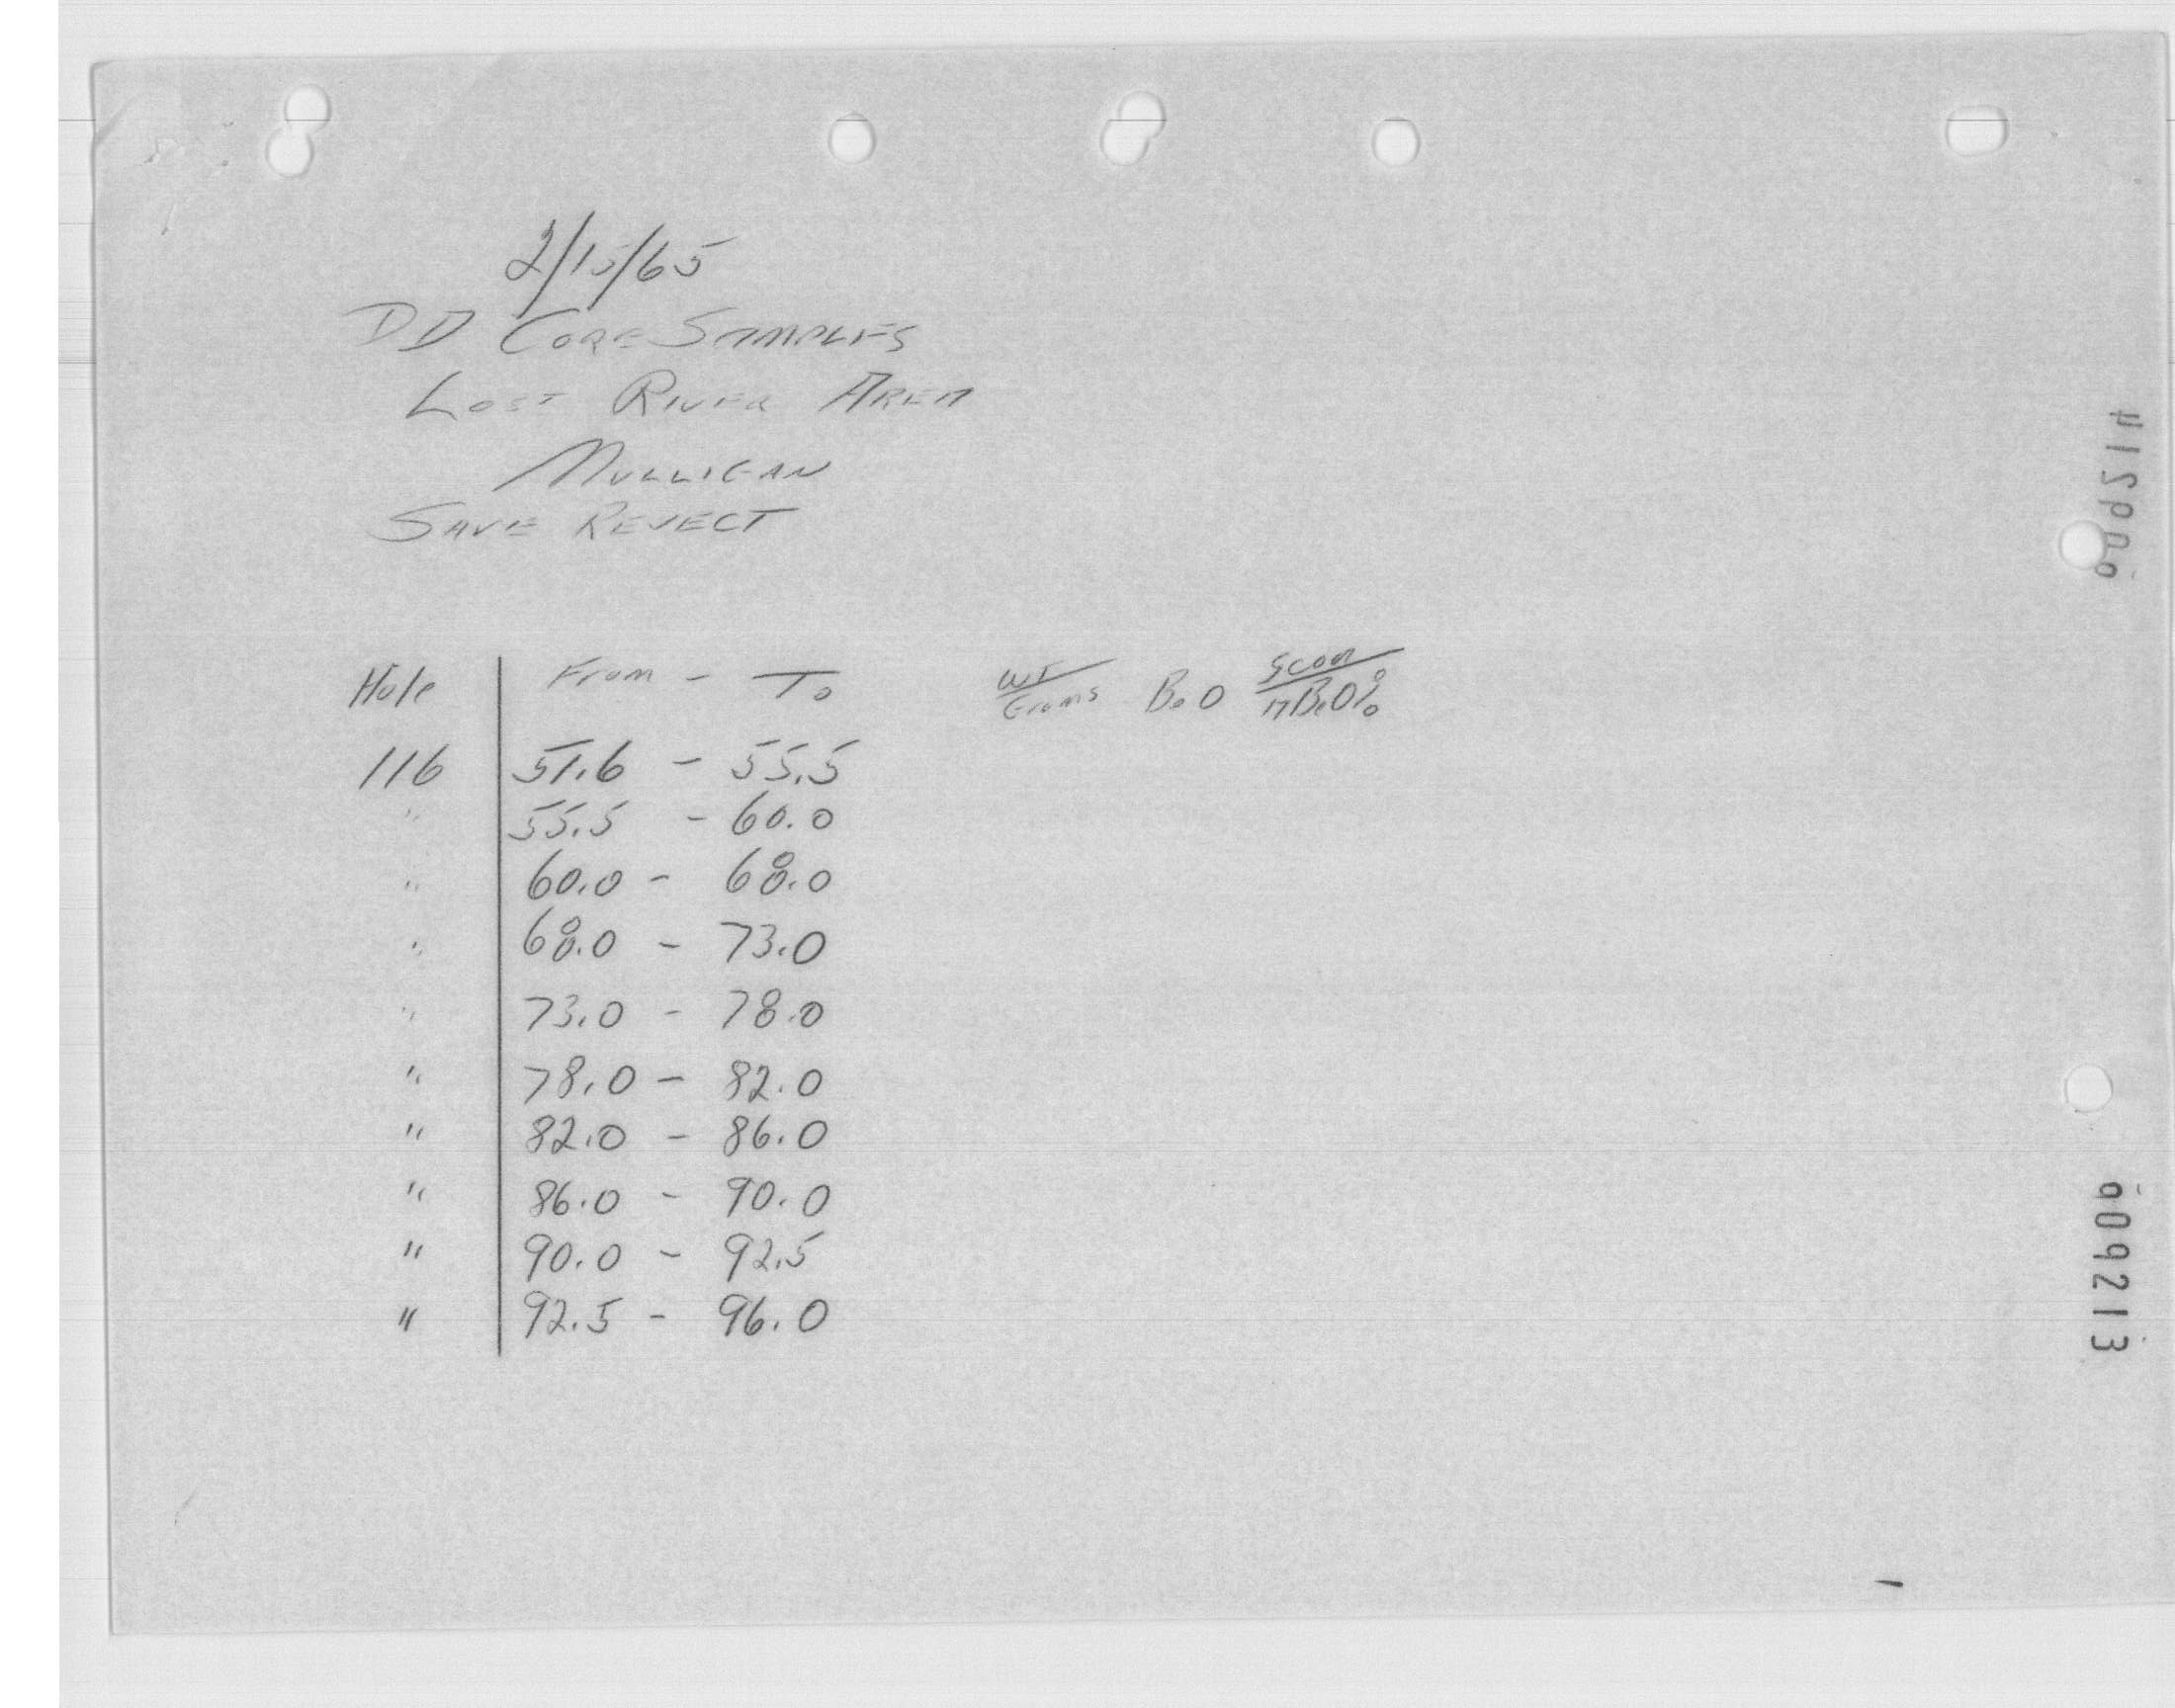 2/15/65
DD CORE SAMPLES
LOST RIVER AREA
MULLIGAN
SAVE REJECT
Hole From - To WT/Grams BeO
116 51.6 - 55.5
" 55.5 - 60.0
" 60.0 - 68.0
" 68.0 - 73.0
" 73.0 - 78.0
" 78.0 - 82.0
" 82.0 - 86.0
" 86.0 - 90.0
" 90.0 - 92.5
" 92.5 - 96.0
009214
009213